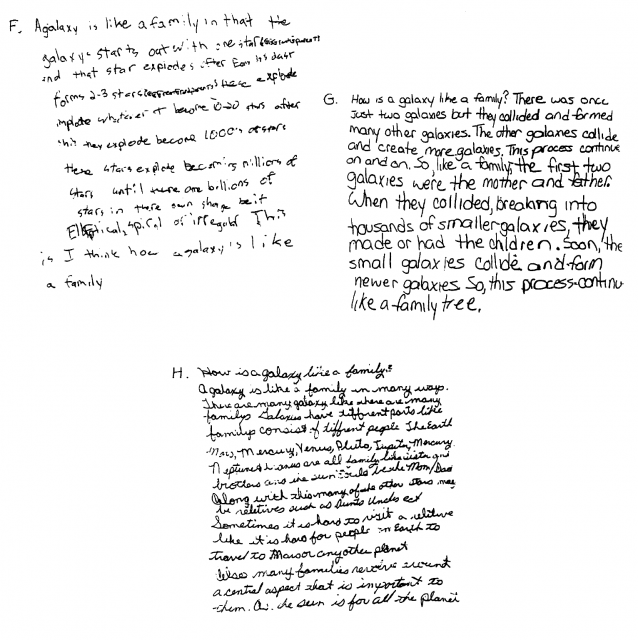 F. A galaxy is like a family in that the
galaxy starts out with one star
and that star explodes after Eons its dust
forms 2-3 stars these explode
implode whatever it become 10-20 stars after
this they explode become 1000's of stars
these stars explode becoming millions of
stars until there are billions of
stars in there own shape be it
Elliptical, spiral or irregold This
is I think how a galaxy is like
a family
G. How is a galaxy like a family? There was once
Just two galaxies but they collided and formed
many other galaxies. The other galaxies collide
and create more galaxies. This process continue
on and on. So, like a family, the first two
galaxies were the mother and father.
When they collided, breaking into
thousands of smaller galaxies, they
made or had the children. Soon, the
small galaxies collide and form
newer galaxies. So, this process continu
like a family tree.
H. How is a galaxy like a family?
A galaxy is like a family in many ways.
There are many galaxy like there are many
familys Galaxies have different parts like
familys consist of diffrent people The Earth
Mars, Mercury, Venus, Pluto, Jupiter, Mercury
Neptune are all family like sister and
brothers and the sun could be the Mom/Dad
Along with this many of the other stars may
be reletives such as Aunts Uncles ect
Sometimes it is hard to visit a reletive
like it is hard for people on Earth to
travel to Mars or any other planet
Also many families revolve around
a central aspect that is important to
them. As the sun is for all the planet